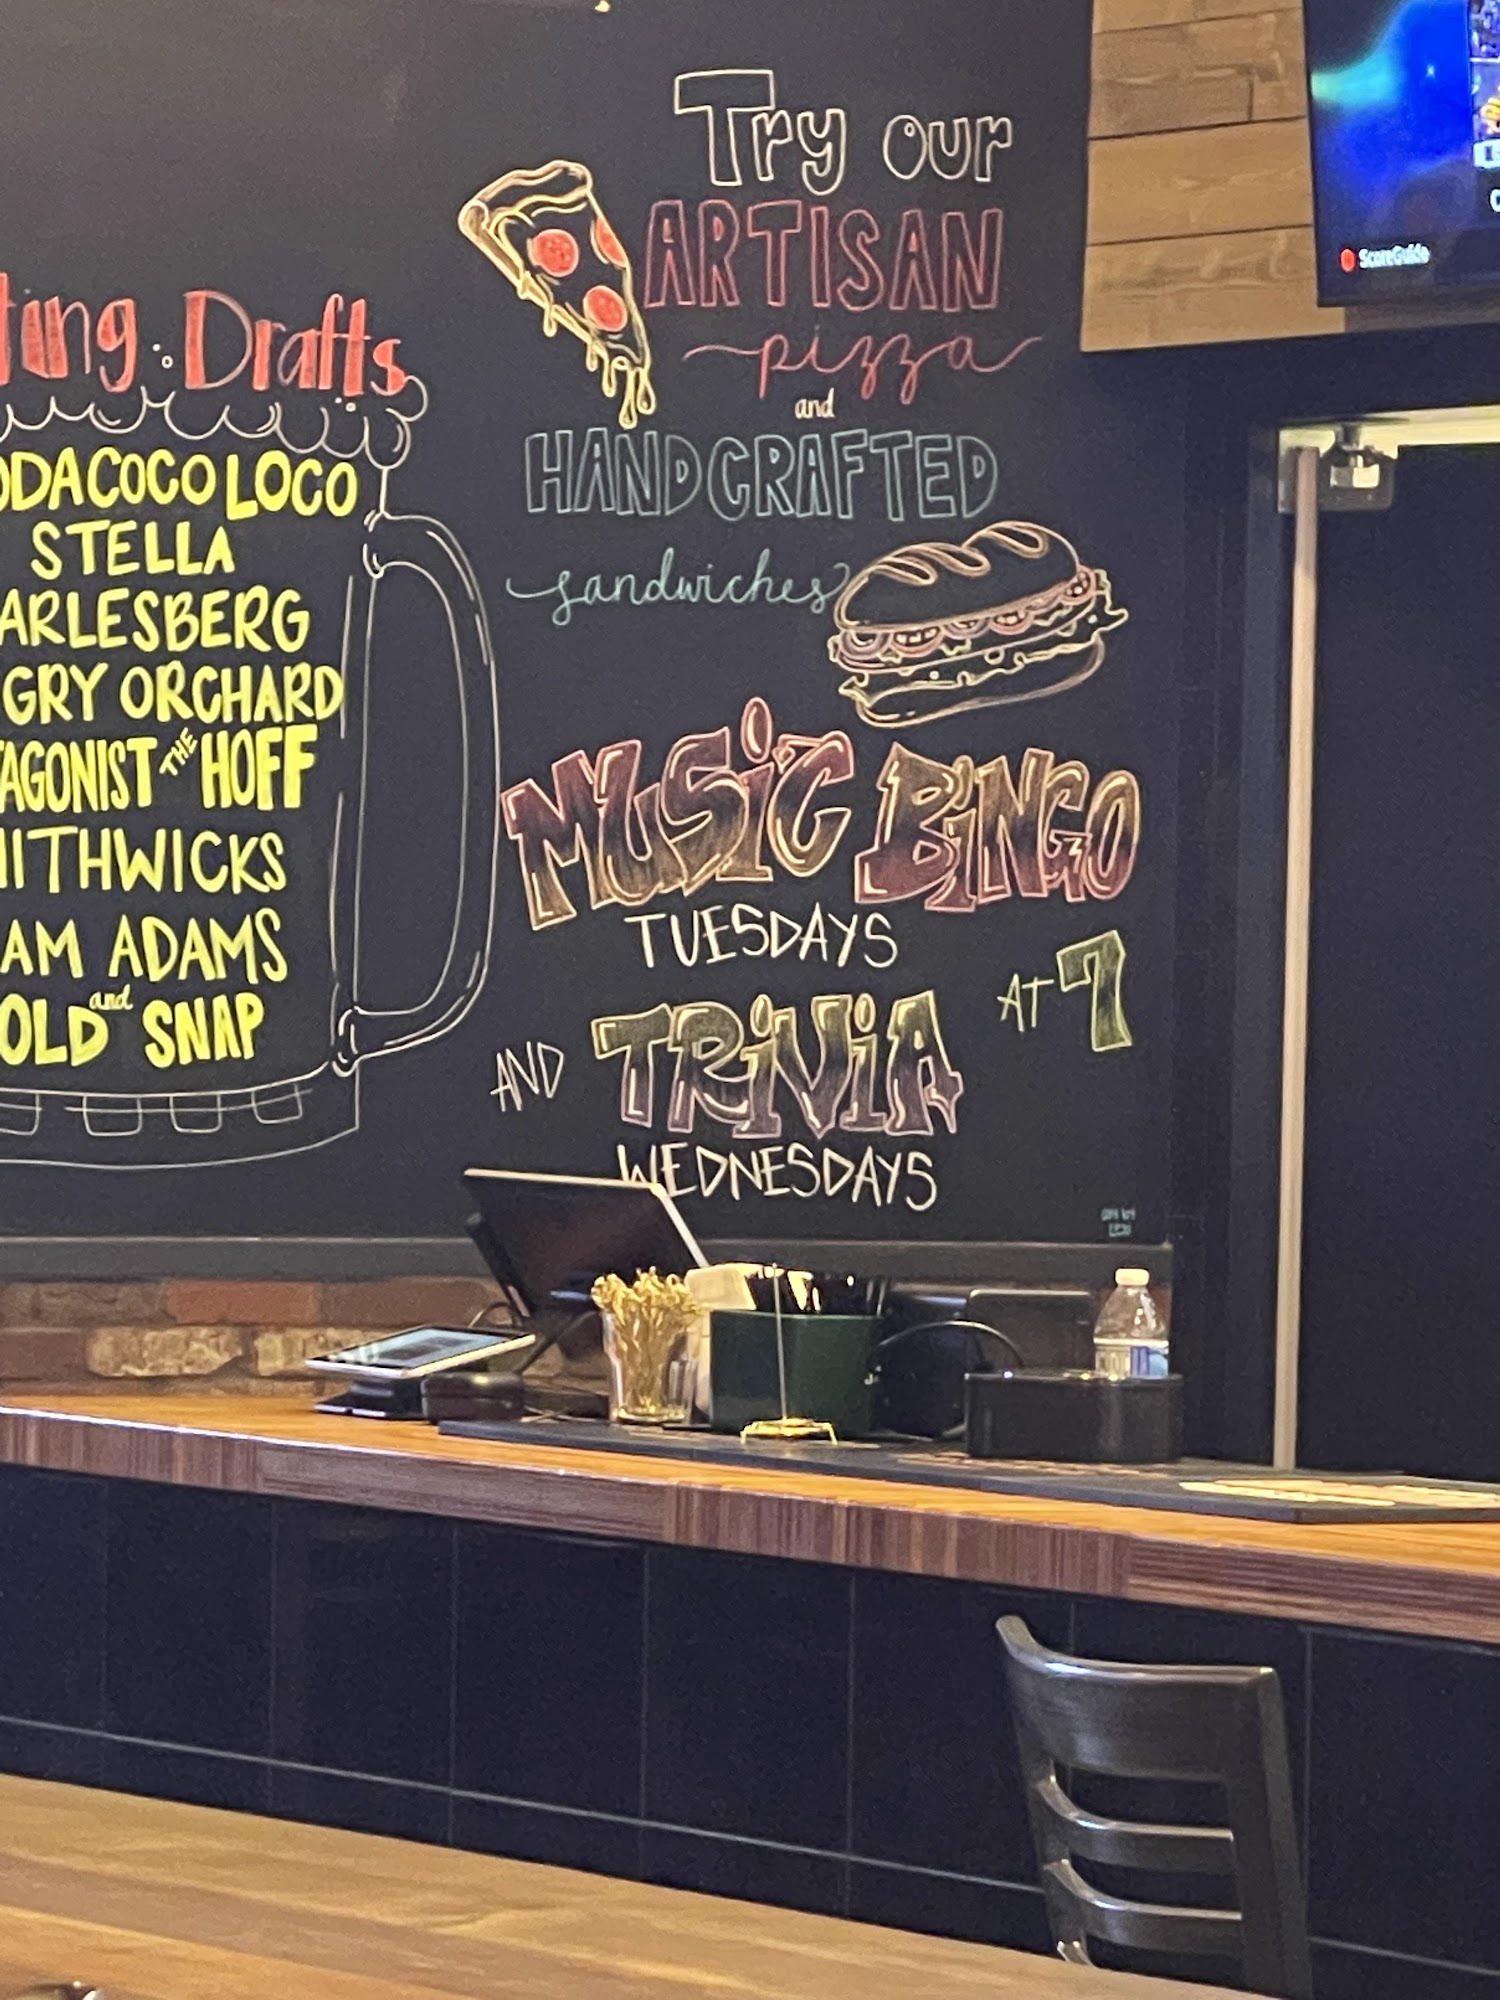 ting Drafts
ODACOCO LOCO
STELLA
ARLESBERG
GRY ORCHARD
AGONIST THE HOFF
ITHWICKS
AM ADAMS
OLD and SNAP
Try our
ARTISAN
pizza
and
HANDCRAFTED
sandwiches
MUSiC BiNGO
TUESDAYS
AT 7
AND TRiViA
WEDNESDAYS
ScoreGuide